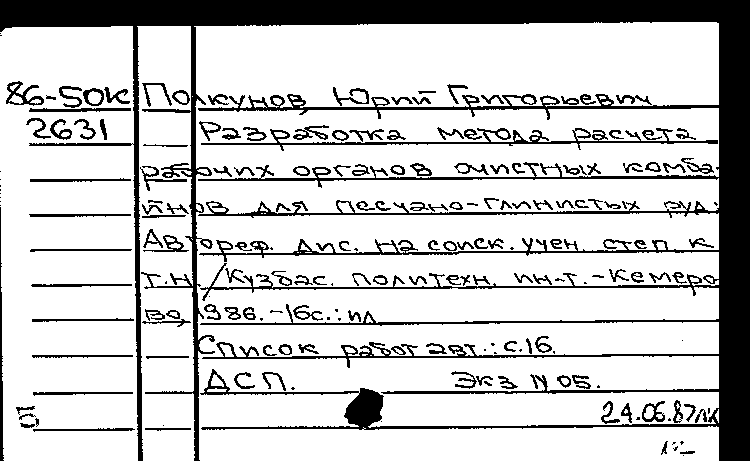 86-50К Полкунов, Юрий Григорьевич
2631 Разработка метода расчета
рабочих органов очистных комба-
йнов для песчано-глинистых руд:
Автореф. дис. на соиск. учен. степ к
т.н. / Кузбас. политехн. ин-т. - Кемеро
во, 1986. - 16с.: ил
Список работ авт.: с.16.
ДСП. Экз N 05.
24.06.87